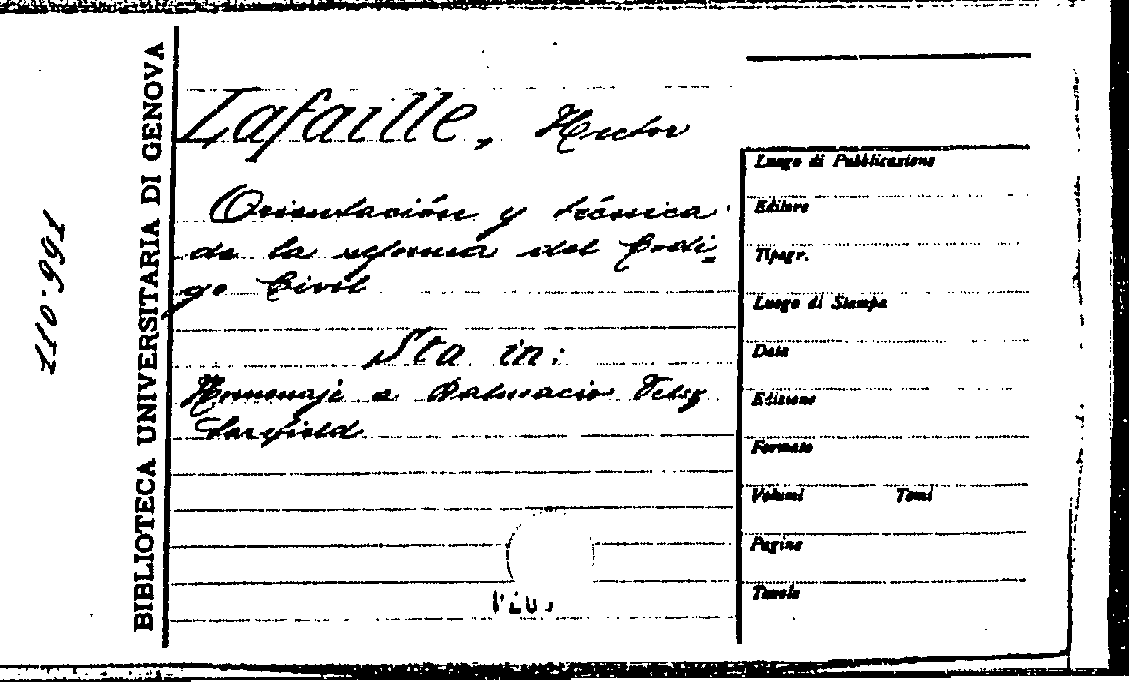 BIBLIOTECA UNIVERSITARIA DI GENOVA
110.991
Lafaille, Hector
Orientación y técnica
de la reforma del Codi-
go Civil
Sta in:
Homenaje a Dalmacio Velez
Sarsfield
Luogo di Pubblicazione
Editore
Tipogr.
Luogo di Stampa
Data
Edizione
Formato
Volumi Tomi
Pagine
Tavole